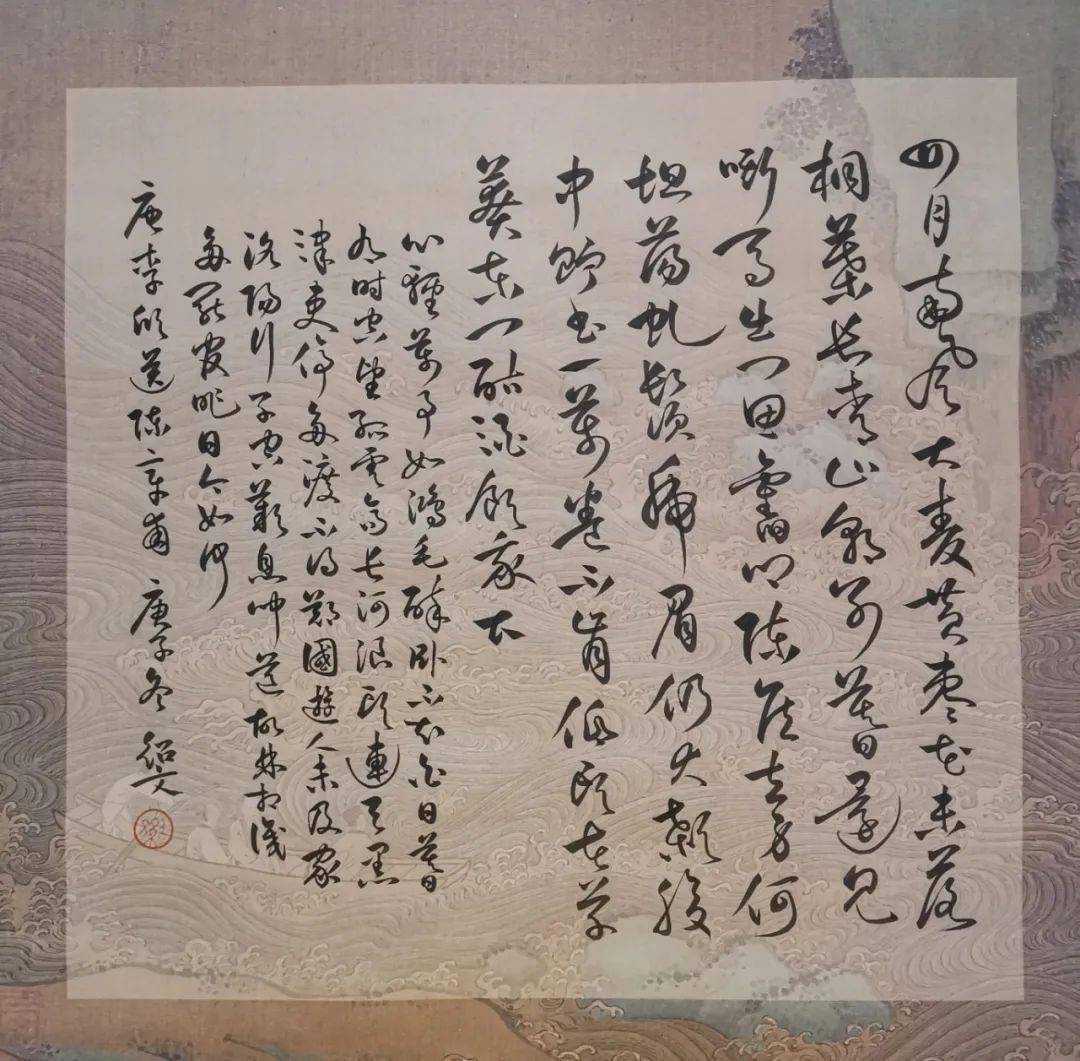 四月南風大麦黄枣花未落
桐葉长青山朝别暮還見
嘶馬出门思舊乡陈侯立身何
坦蕩虬鬚虎眉仍大颡腹
中貯书一萬卷不肯低头在草
莽东门酤酒飲我曹
心輕萬事如鴻毛醉卧不知白日暮
有时空望孤雲高长河浪头連天黑
津吏停舟渡不得鄭國遊人未及家
洛陽行子空歎息聞道故林相識
多罷官昨日今如何
唐李颀送陈章甫 庚子冬 紹文